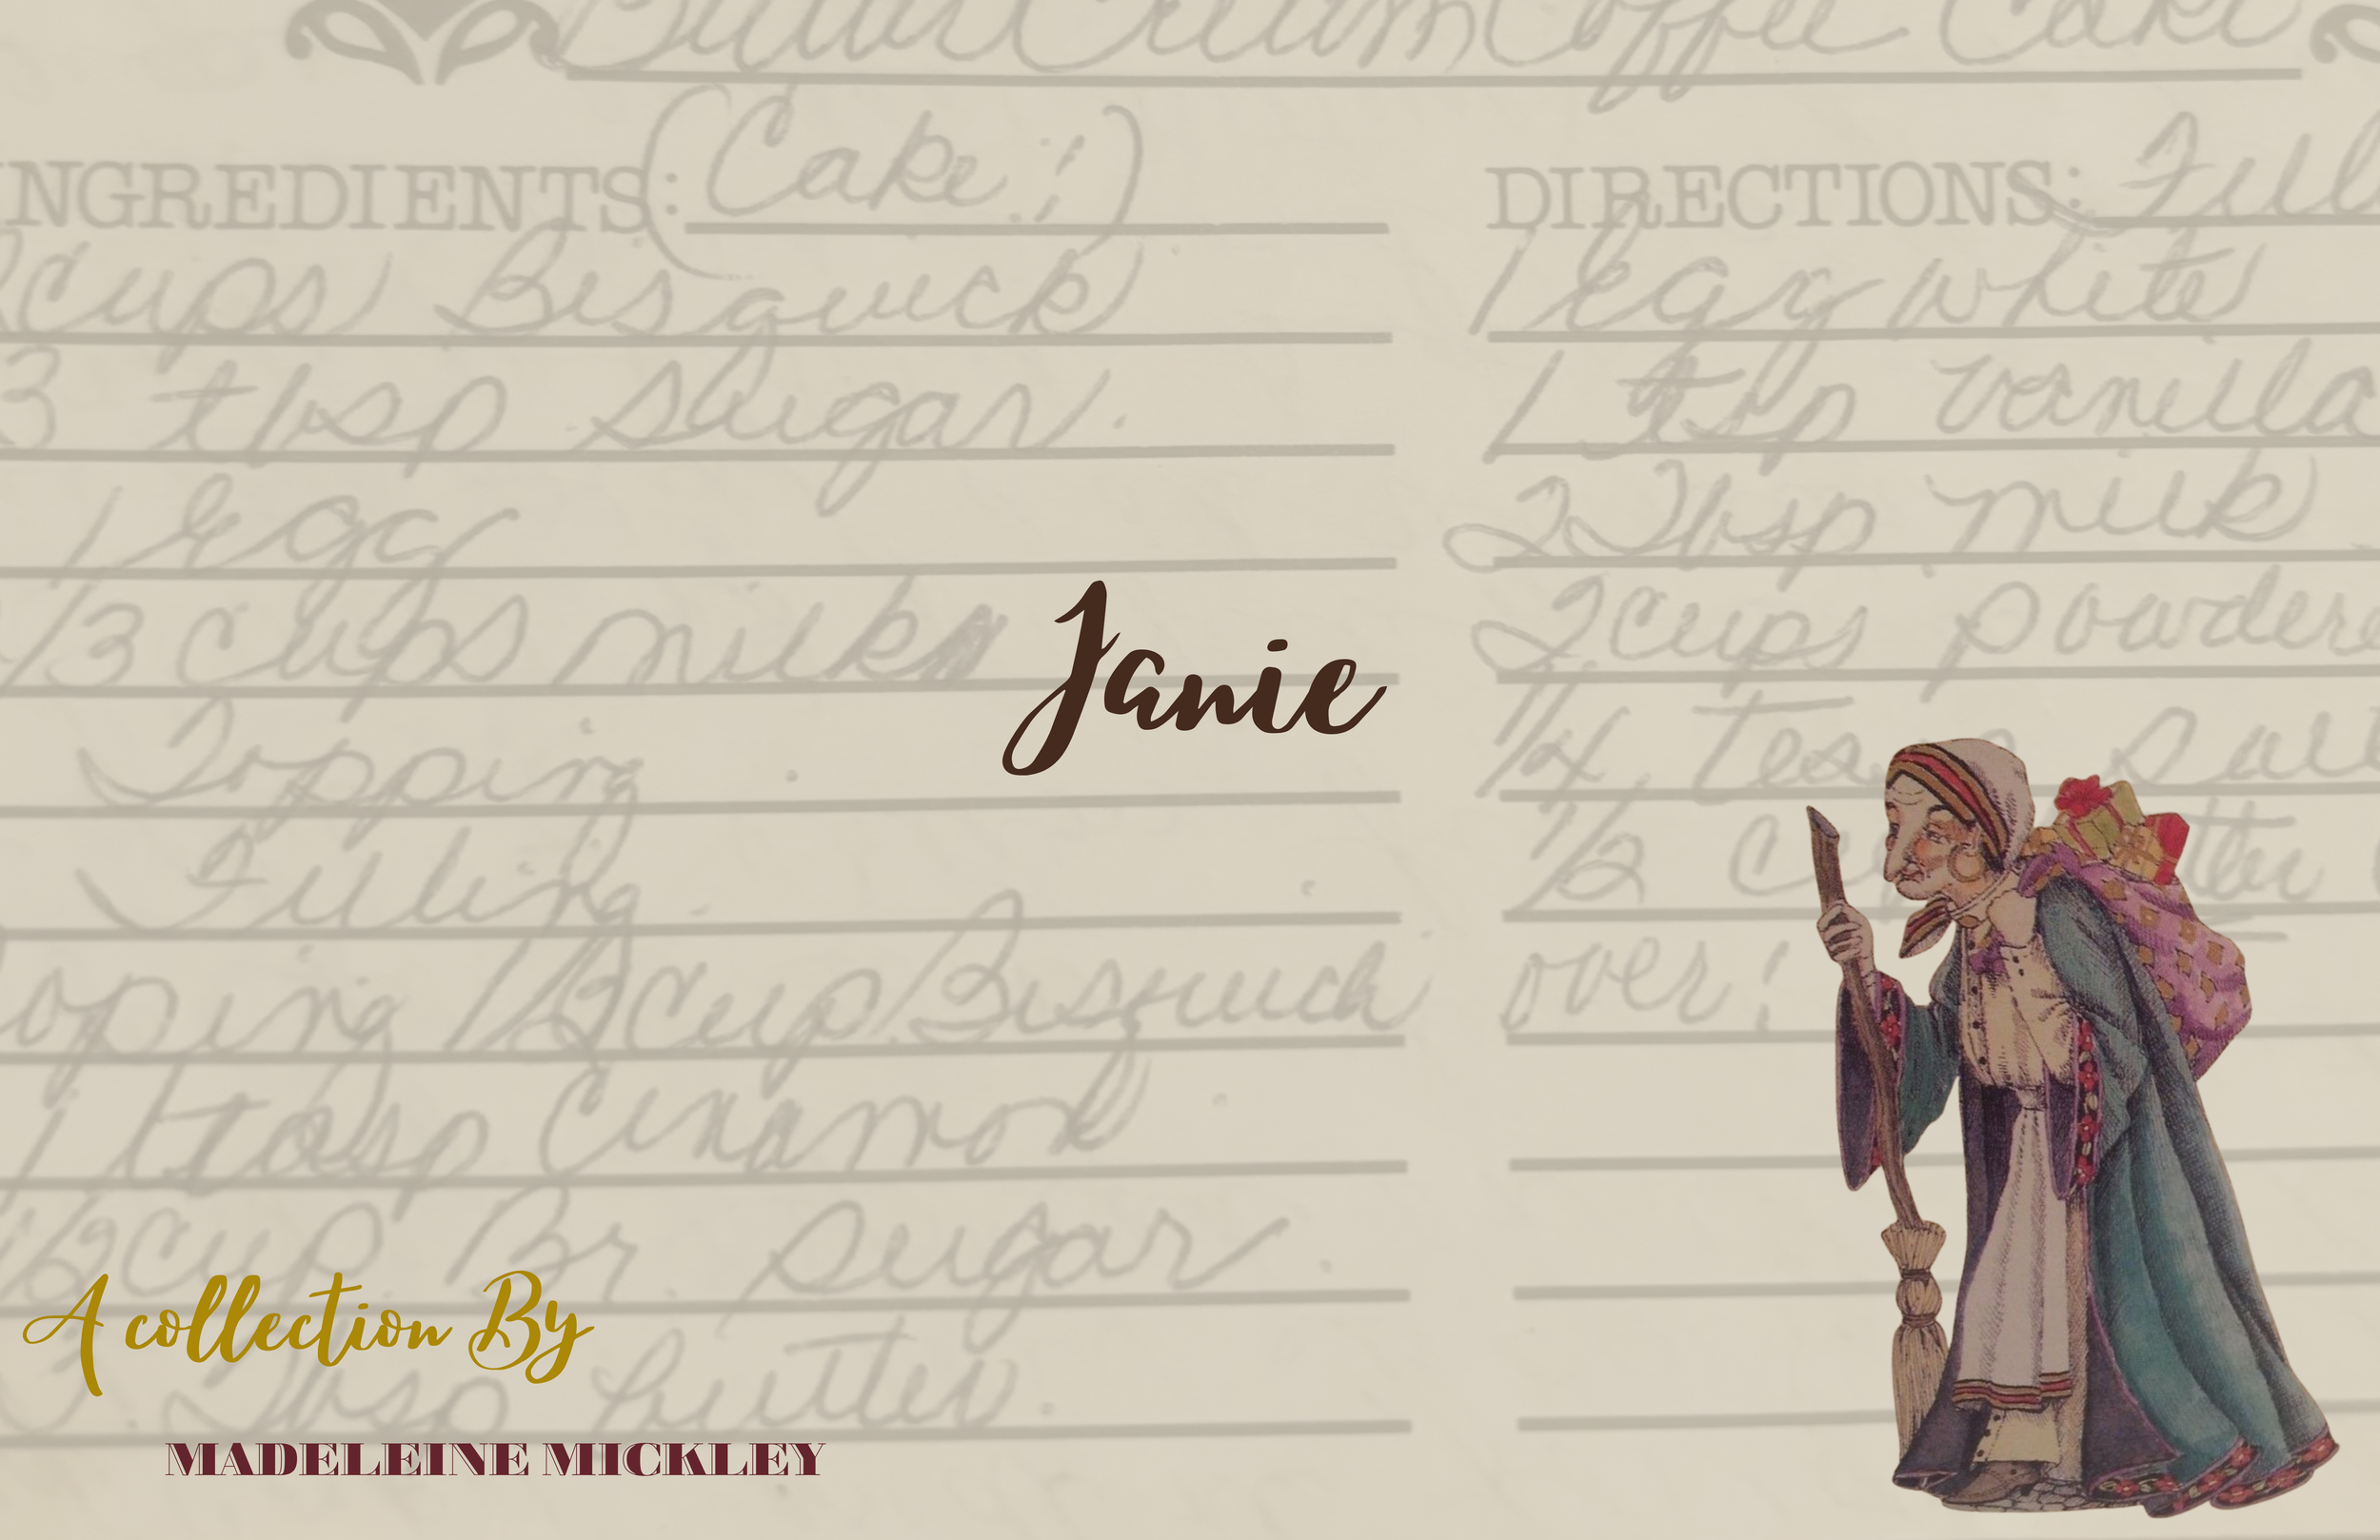 ButterCream Coffee Cake
INGREDIENTS: (Cake;)
cups Bisquick
3 tbsp sugar.
1 egg
1/3 cups milk
Topping
Filling
oping 1/3 cup Bisquick
1 tbsp Cinamon
1/2 cup Br. sugar.
Tbsp butter.
DIRECTIONS: Fill
1 egg white
1 tsp vanilla
2 Tbsp milk
2 cups powdere
1/4 tes salt
1/2 cu tter
over!
Janie
A collection By
MADELEINE MICKLEY